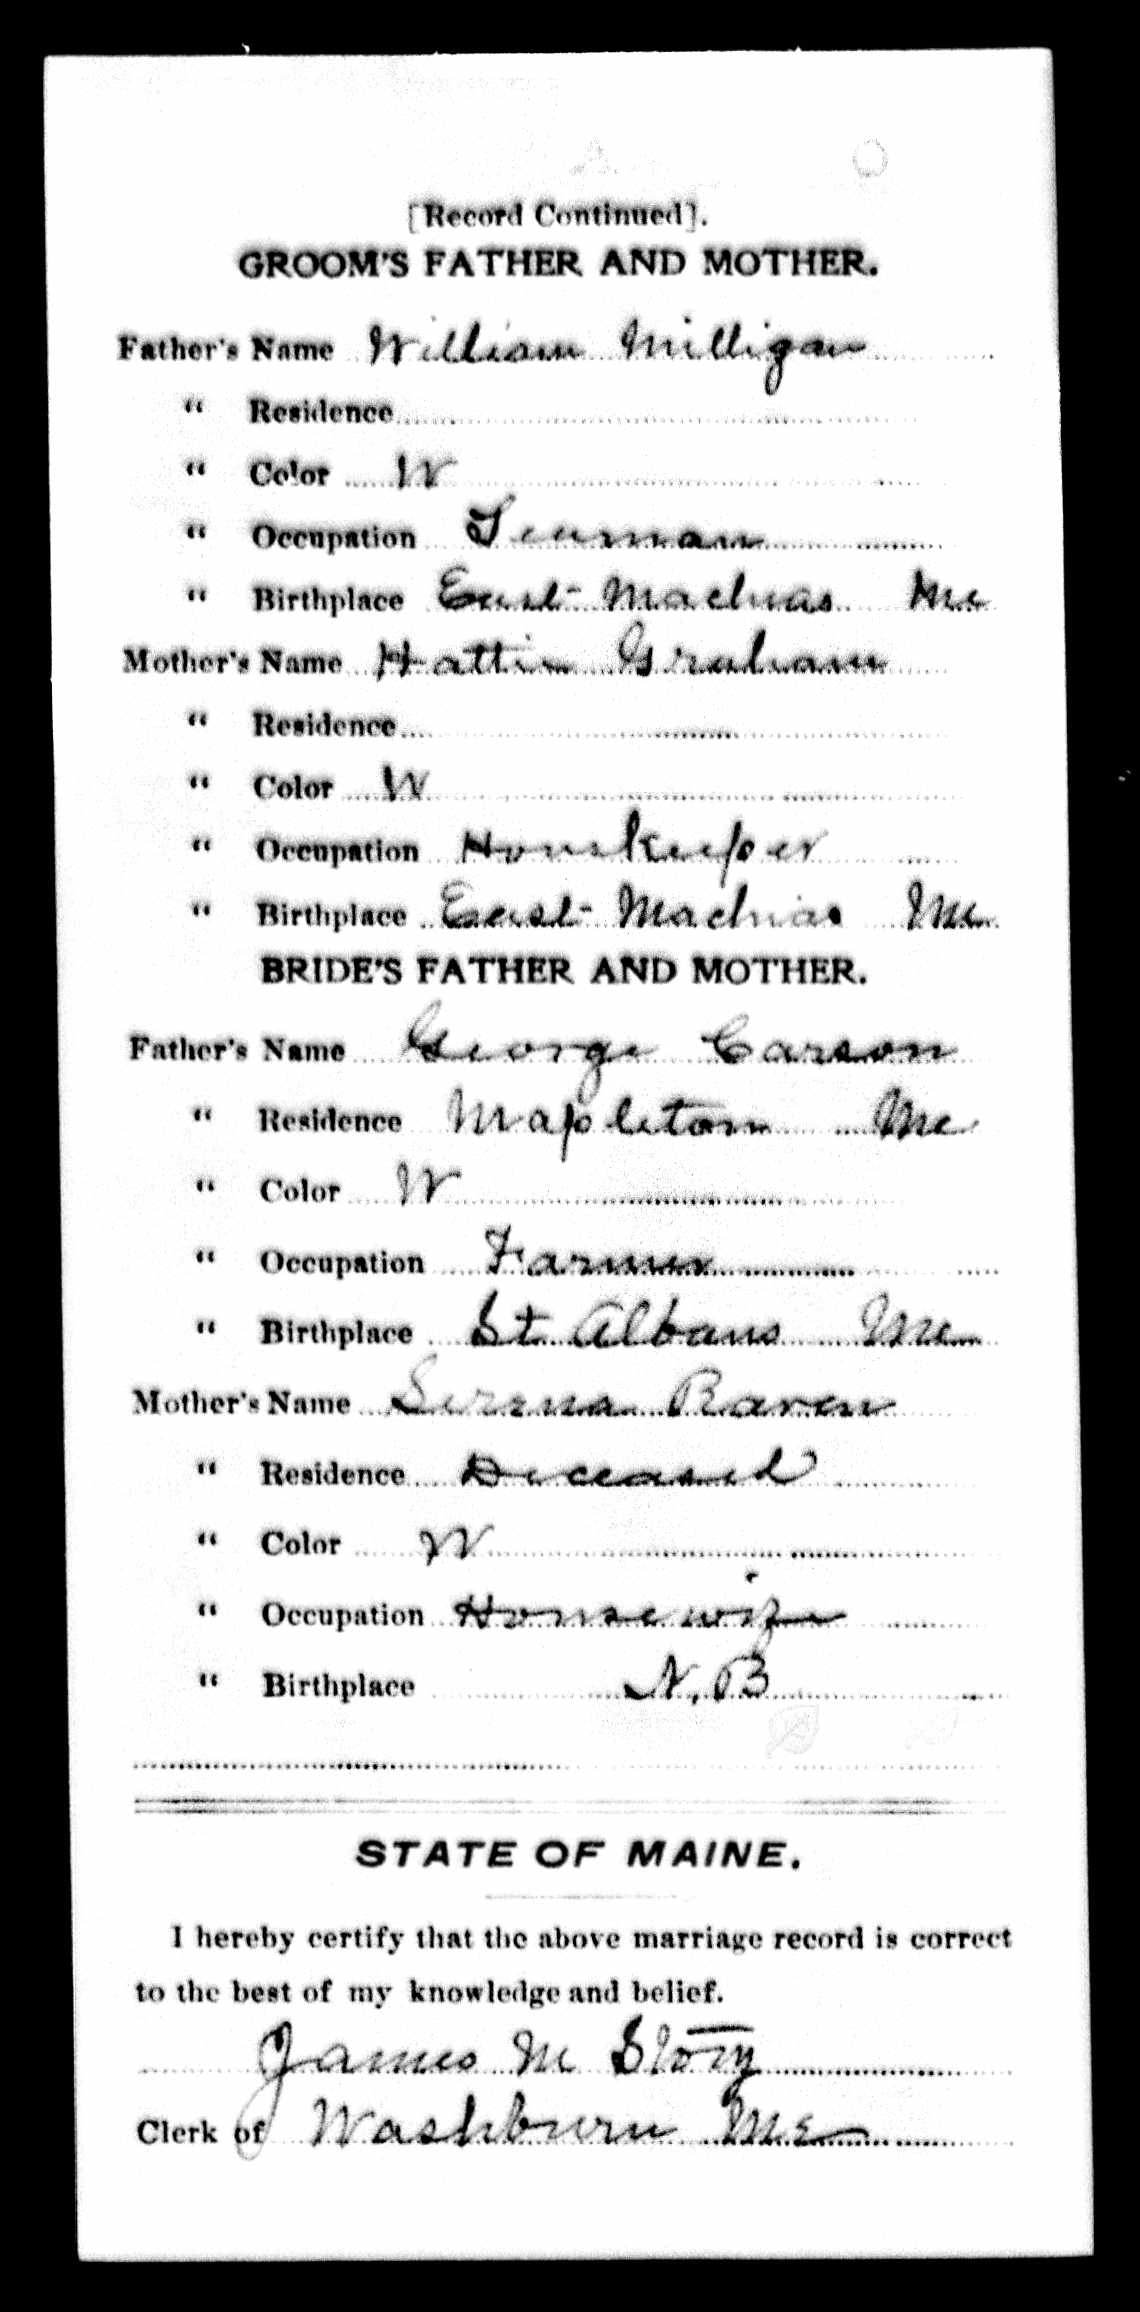 [Record Continued].
GROOM'S FATHER AND MOTHER.
Father's Name William Milligan
" Residence
" Color W
" Occupation Seaman
" Birthplace East Machias Me
Mother's Name Hattie Graham
" Residence
" Color W
" Occupation Housekeeper
" Birthplace East Machias Me
BRIDE'S FATHER AND MOTHER.
Father's Name George Carson
" Residence Mapleton Me
" Color W
" Occupation Farmer
" Birthplace St Albans Me
Mother's Name Serena Raven
" Residence Deceased
" Color W
" Occupation Housewife
" Birthplace N.B
STATE OF MAINE.
I hereby certify that the above marriage record is correct
to the best of my knowledge and belief.
James M Story
Clerk of Washburn Me